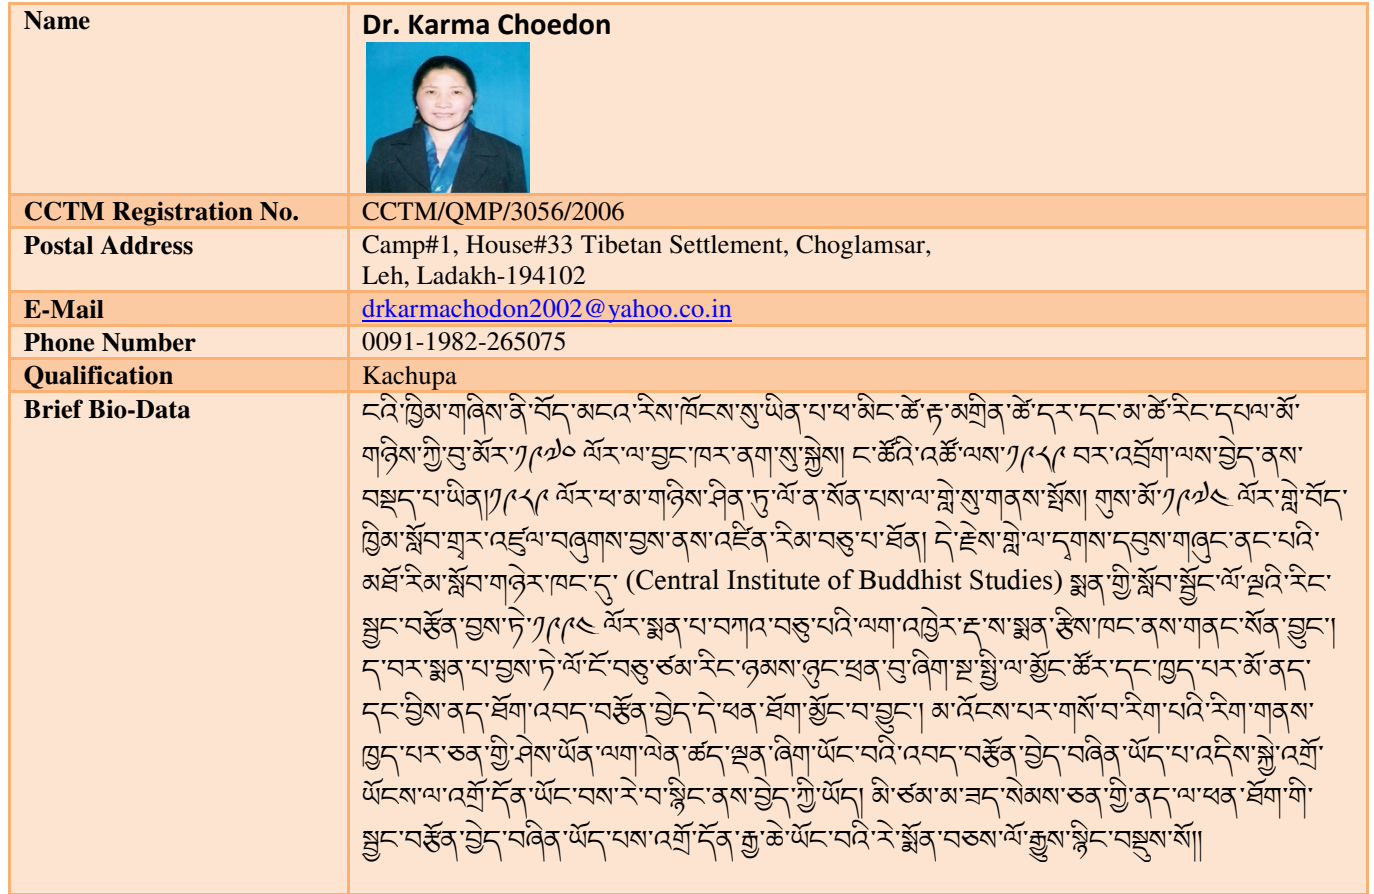 Name
Dr. Karma Choedon
CCTM Registration No.
CCTM/QMP/3056/2006
Postal Address
Camp#1, House#33 Tibetan Settlement, Choglamsar,
Leh, Ladakh-194102
E-Mail
drkarmachodon2002@yahoo.co.in
Phone Number
0091-1982-265075
Qualification
Kachupa
Brief Bio-Data
ངའི་ཁྱིམ་གཞིས་ནི་བོད་མངའ་རིས་ཁོངས་སུ་ཡིན་པ་ཕ་མིང་ཚེ་རྟ་མགྲིན་ཚེ་དར་དང་མ་ཚེ་རིང་དཔལ་མོ་
གཉིས་ཀྱི་བུ་མོར་༡༩༧༠ ལོར་ལ་བྱང་ཁར་ནག་སུ་སྐྱེས། ང་ཚོའི་འཚོ་ལས་༡༩༨༩ བར་འབྲོག་ལས་བྱེད་ནས་
བསྡད་པ་ཡིན།༡༩༨༩ ལོར་ཕ་མ་གཉིས་ཤིན་ཏུ་ལོ་ན་སོན་པས་ལ་གླེ་སུ་གནས་སྤོས། གུས་མོ་༡༩༧༥ ལོར་གླེ་བོད་
ཁྱིམ་སློབ་གྲྭར་འཛུལ་བཞུགས་བྱས་ནས་འཛིན་རིམ་བཅུ་པ་ཐོན། དེ་རྗེས་གླེ་ལ་དྭགས་དབུས་གཞུང་ནང་པའི་
མཐོ་རིམ་སློབ་གཉེར་ཁང་དུ་ (Central Institute of Buddhist Studies) སྨན་གྱི་སློབ་སྦྱོང་ལོ་ལྔའི་རིང་
སྦྱང་བརྩོན་བྱས་ཏེ་༡༩༩༥ ལོར་སྨན་པ་བཀའ་བཅུ་པའི་ལག་འཁྱེར་རྡ་ས་སྨན་རྩིས་ཁང་ནས་གནང་སོན་བྱུང་།
ད་བར་སྨན་པ་བྱས་ཏེ་ལོ་ངོ་བཅུ་ཙམ་རིང་ཉམས་ཉུང་ཕྲན་བུ་ཞིག་སྔ་སྤྱི་ལ་མྱོང་ཚོར་དང་ཁྱད་པར་མོ་ནད་
དང་བྱིས་ནད་ཐོག་འབད་བརྩོན་བྱེད་དེ་ཕན་ཐོག་མྱོང་བ་བྱུང་། མ་འོངས་པར་གསོ་བ་རིག་པའི་རིག་གནས་
ཁྱད་པར་ཅན་གྱི་ཤེས་ཡོན་ལག་ལེན་ཚད་ལྡན་ཞིག་ཡོང་བའི་འབད་བརྩོན་བྱེད་བཞིན་ཡོད་པ་འདིས་སྐྱེ་འགྲོ་
ཡོངས་ལ་འགྲོ་དོན་ཡོང་བས་རེ་བ་སྙིང་ནས་བྱེད་ཀྱི་ཡོད། མི་ཙམ་མ་ཟད་སེམས་ཅན་གྱི་ནད་ལ་ཕན་ཐོག་གི་
སྦྱང་བརྩོན་བྱེད་བཞིན་ཡོད་པས་འགྲོ་དོན་རྒྱ་ཆེ་ཡོང་བའི་རེ་སྨོན་བཅས་ལོ་རྒྱུས་སྙིང་བསྡུས་སོ།།